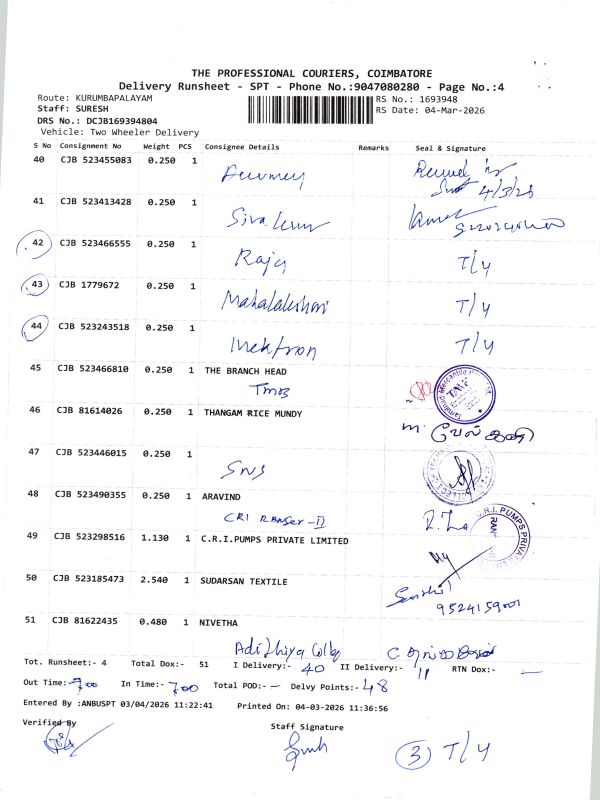 THE PROFESSIONAL COURIERS, COIMBATORE
Delivery Runsheet - SPT - Phone No.:9047080280 - Page No.:4
Route: KURUMBAPALAYAM RS No.: 1693948
Staff: SURESH RS Date: 04-Mar-2026
DRS No.: DCJB169394804
Vehicle: Two Wheeler Delivery
S No Consignment No Weight PCS Consignee Details Remarks Seal & Signature
40 CJB 523455083 0.250 1
4/3/26
41 CJB 523413428 0.250 1
42 CJB 523466555 0.250 1 Raja T/y
43 CJB 1779672 0.250 1 Mahalakshmi T/y
44 CJB 523243518 0.250 1 T/y
45 CJB 523466810 0.250 1 THE BRANCH HEAD
TMB
46 CJB 81614026 0.250 1 THANGAM RICE MUNDY
47 CJB 523446015 0.250 1 SNS
48 CJB 523490355 0.250 1 ARAVIND
CRI Ranser-II
49 CJB 523298516 1.130 1 C.R.I.PUMPS PRIVATE LIMITED
50 CJB 523185473 2.540 1 SUDARSAN TEXTILE
51 CJB 81622435 0.480 1 NIVETHA
Adithiya Collg
Tot. Runsheet:- 4 Total Dox:- 51 I Delivery:- 40 II Delivery:- 11 RTN Dox:- —
Out Time:- 700 In Time:- 700 Total POD:- - Delvy Points:- 48
Entered By :ANBUSPT 03/04/2026 11:22:41 Printed On: 04-03-2026 11:36:56
Verified By Staff Signature
3 T/y